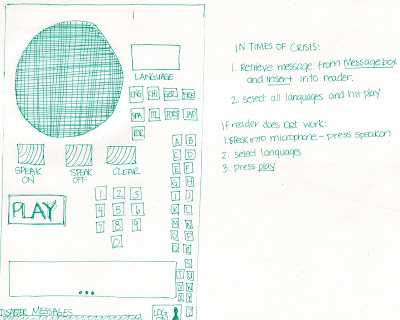 LANGUAGE
ENG CHI GER FRE
SPA ITL PORT JAP
KOR
SPEAK ON
SPEAK OFF
CLEAR
PLAY
1 2 3
4 5 6
7 8 9
0
A B
C D
E F
G H
I J
K L
M N
O P
Q R
MESSAGES
LOG ON
IN TIMES OF CRISIS:
1. Retrieve message from Message box
and insert into reader.
2. select all languages and hit play
If reader does not work:
1. Speak into microphone - press speak on
2. select languages
3. press play